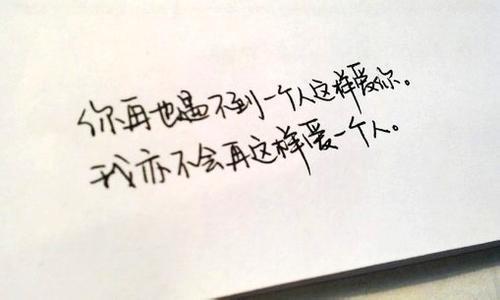 你再也遇不到一个人这样爱你。
我亦不会再这样爱一个人。